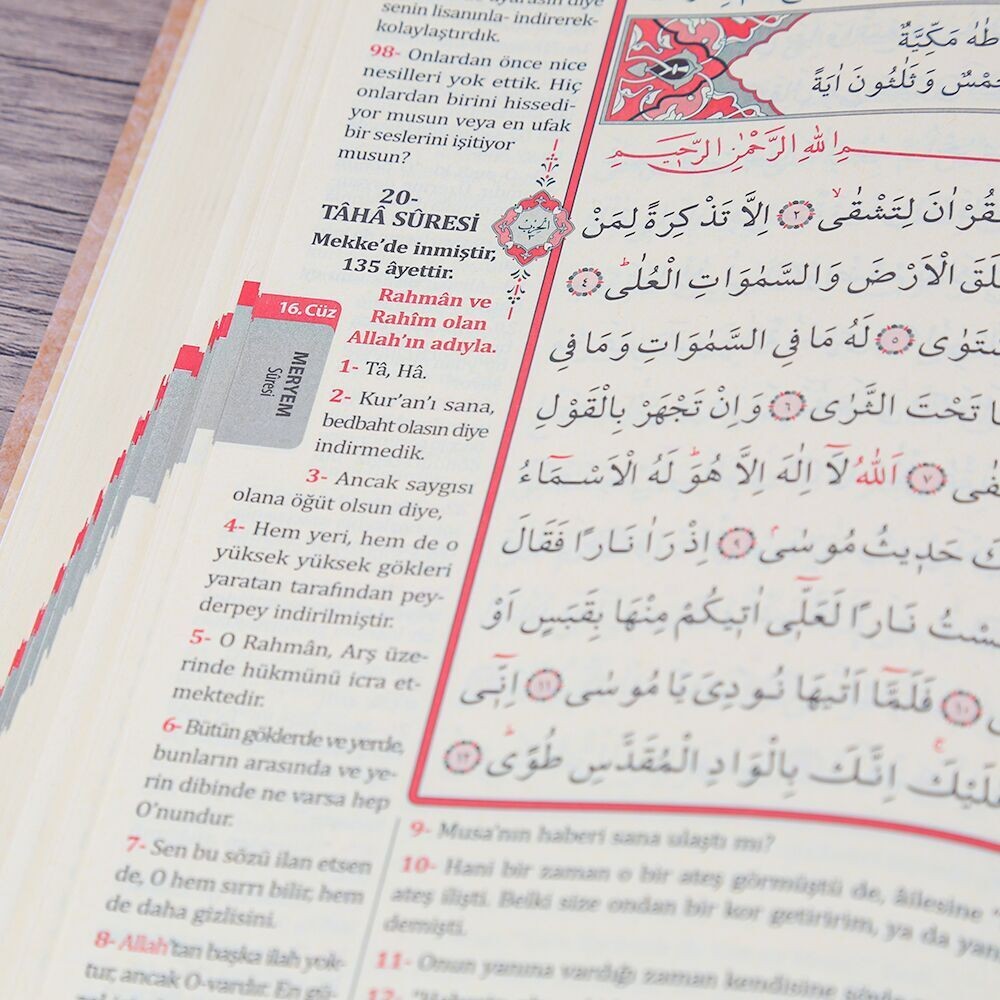 senin lisanınla- indirerek-
kolaylaştırdık.
98- Onlardan önce nice
nesilleri yok ettik. Hiç
onlardan birini hissedi-
yor musun veya en ufak
bir seslerini işitiyor
musun?
20-
TÂHÂ SÛRESİ
Mekke'de inmiştir,
135 âyettir.
Rahmân ve
Rahîm olan
Allah'ın adıyla.
1- Tâ, Hâ.
2- Kur'an'ı sana,
bedbaht olasın diye
indirmedik.
3- Ancak saygısı
olana öğüt olsun diye,
4- Hem yeri, hem de o
yüksek yüksek gökleri
yaratan tarafından pey-
derpey indirilmiştir.
5- O Rahmân, Arş üze-
rinde hükmünü icra et-
mektedir.
6- Bütün göklerde ve yerde,
bunların arasında ve ye-
rin dibinde ne varsa hep
O'nundur.
7- Sen bu sözü ilan etsen
de, O hem sırrı bilir, hem
de daha gizlisini.
8- Allah'tan başka ilah yok-
tur, ancak O-vardır. En gü-
16. Cüz
MERYEM
Sûresi
طٰهٰ مَكِّيَّةٌ
وَثَلٰثُونَ اٰيَةً
اللهِ الرَّحْمٰنِ الرَّحِيمِ
لِتَشْقٰىۙ ﴿٢﴾ اِلَّا تَذْكِرَةً لِمَنْ
الْاَرْضَ وَالسَّمٰوَاتِ الْعُلٰىۜ ﴿٤﴾
﴿٥﴾ لَهُ مَا فِي السَّمٰوَاتِ وَمَا فِي
تَحْتَ الثَّرٰى ﴿٦﴾ وَاِنْ تَجْهَرْ بِالْقَوْلِ
﴿٧﴾ اَللّٰهُ لَٓا اِلٰهَ اِلَّا هُوَۜ لَهُ الْاَسْمَٓاءُ
حَد۪يثُ مُوسٰىۢ ﴿٩﴾ اِذْ رَاٰ نَارًا فَقَالَ
نَارًا لَعَلّ۪ٓي اٰت۪يكُمْ مِنْهَا بِقَبَسٍ اَوْ
﴿١٠﴾ فَلَمَّٓا اَتٰيهَا نُودِيَ يَا مُوسٰى ﴿١١﴾ اِنّ۪ٓي
اِنَّكَ بِالْوَادِ الْمُقَدَّسِ طُوًىۜ ﴿١٢﴾
9- Musa'nın haberi sana ulaştı mı?
10- Hani bir zaman o bir ateş görmüştü de, âilesine
ateş ilişti. Belki size ondan bir kor getiririm, ya da
demişti.
11- Onun yanına vardığı zaman kendisine
12-